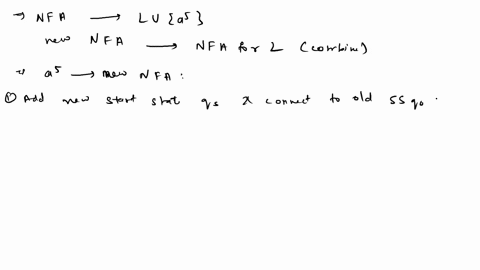 → NFA ⟶ L U {a⁵}
new NFA ⟶ NFA for L (combine)
→ a⁵ ⟶ new NFA :
① Add new start stat qs & connect to old SS q₀ .